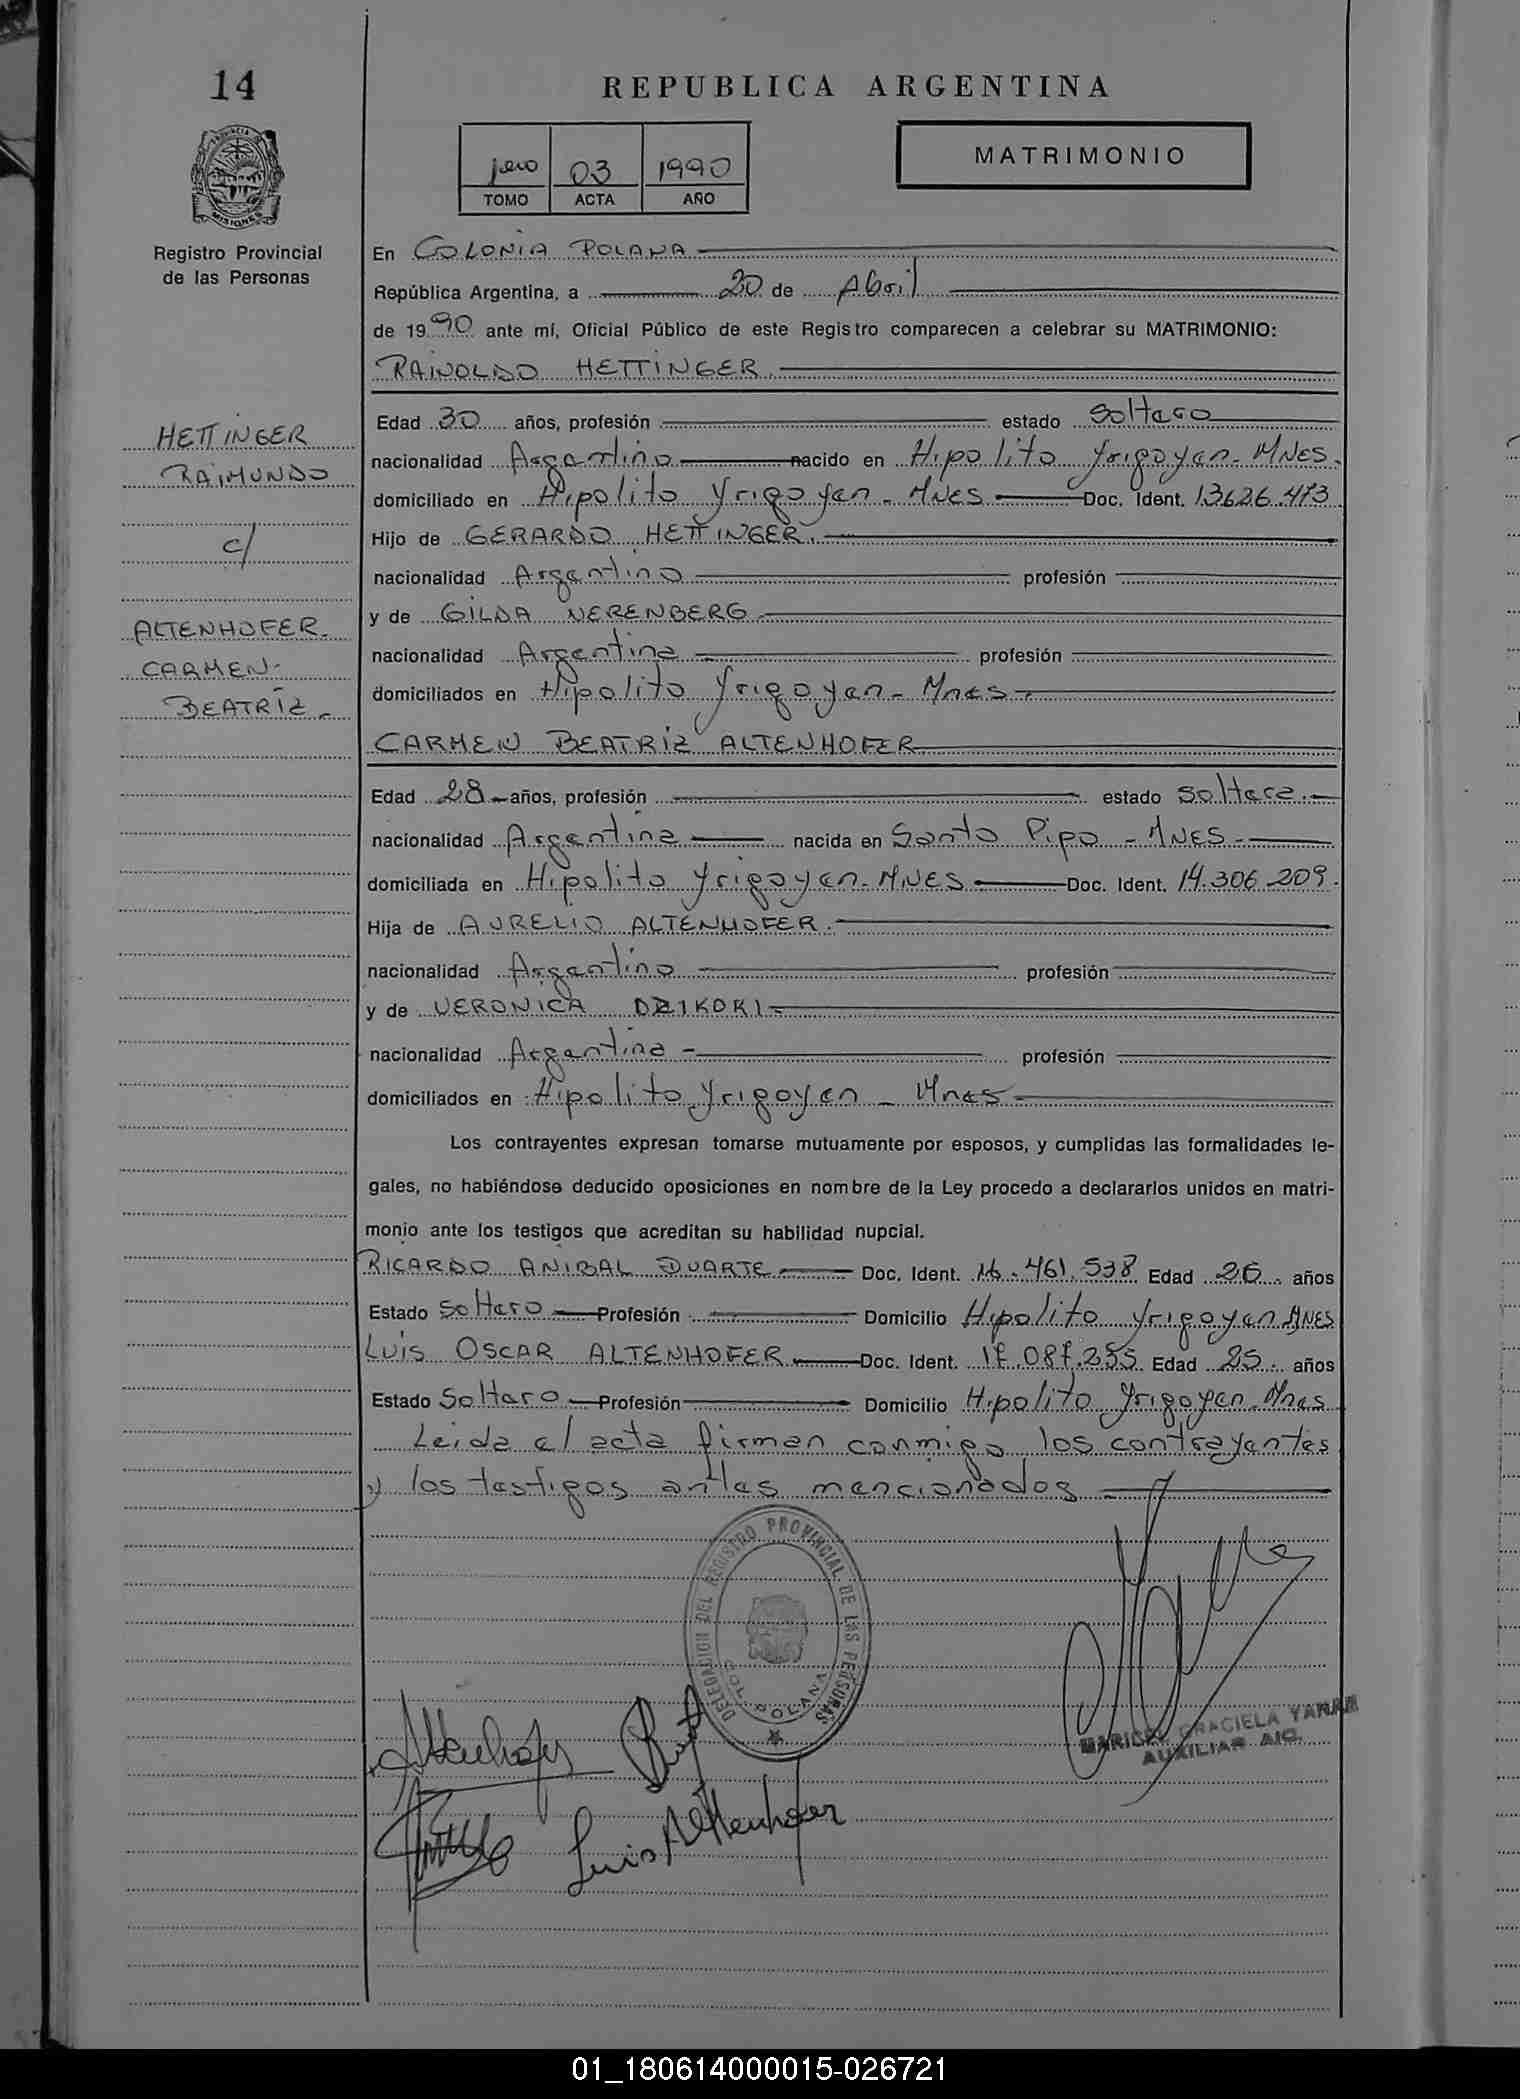 14
REPUBLICA ARGENTINA
1ero 03 1990
TOMO ACTA AÑO
MATRIMONIO
PROVINCIA DE MISIONES
Registro Provincial
de las Personas
En COLONIA POLANA
República Argentina, a 20 de Abril
de 1990 ante mí, Oficial Público de este Registro comparecen a celebrar su MATRIMONIO:
RAINOLDO HETTINGER.
HETTINGER
RAIMUNDO
c/
ALTENHOFER.
CARMEN
BEATRIZ
Edad 30 años, profesión estado soltero
nacionalidad Argentino nacido en Hipolito Yrigoyen - MNES.
domiciliado en Hipolito Yrigoyen - MNES Doc. Ident. 13626.473
Hijo de GERARDO HETTINGER.
nacionalidad Argentino profesión
y de GILDA NERENBERG
nacionalidad Argentina profesión
domiciliados en Hipolito Yrigoyen - Mnes
CARMEN BEATRIZ ALTENHOFER
Edad 28 años, profesión estado soltera.
nacionalidad Argentina nacida en Santo Pipo - MNES
domiciliada en Hipolito Yrigoyen - MNES Doc. Ident. 14.306.209.
Hija de AURELIO ALTENHOFER.
nacionalidad Argentino profesión
y de VERONICA DZIKOKI
nacionalidad Argentina profesión
domiciliados en Hipolito Yrigoyen - Mnes
Los contrayentes expresan tomarse mutuamente por esposos, y cumplidas las formalidades le-
gales, no habiéndose deducido oposiciones en nombre de la Ley procedo a declararlos unidos en matri-
monio ante los testigos que acreditan su habilidad nupcial.
RICARDO ANIBAL DUARTE Doc. Ident. 16.461.538 Edad 26 años
Estado soltero Profesión Domicilio Hipolito Yrigoyen MNES
LUIS OSCAR ALTENHOFER Doc. Ident. 17.087.255 Edad 25 años
Estado Soltero Profesión Domicilio Hipolito Yrigoyen - Mnes
Leida el acta firman conmigo los contrayentes
y los testigos antes mencionados
DELEGACION DEL REGISTRO PROVINCIAL DE LAS PERSONAS
COL. POLANA
MARICEL GRACIELA YANAR
AUXILIAR
Altenhofer
Luis Altenhofer
01_180614000015-026721